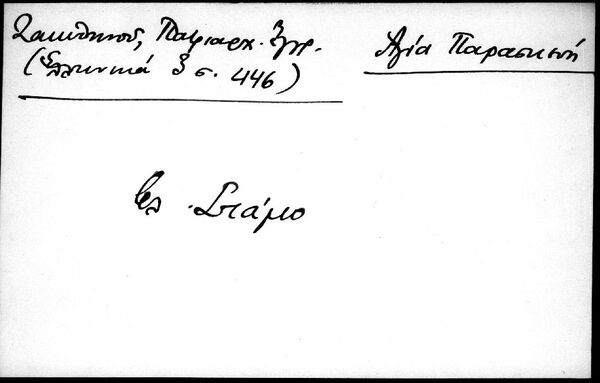 Ζακυθηνού, Πατριαρχ. Έγγρ.
(Ελληνικά 3 σ. 446)
Αγία Παρασκευή
Στάμο